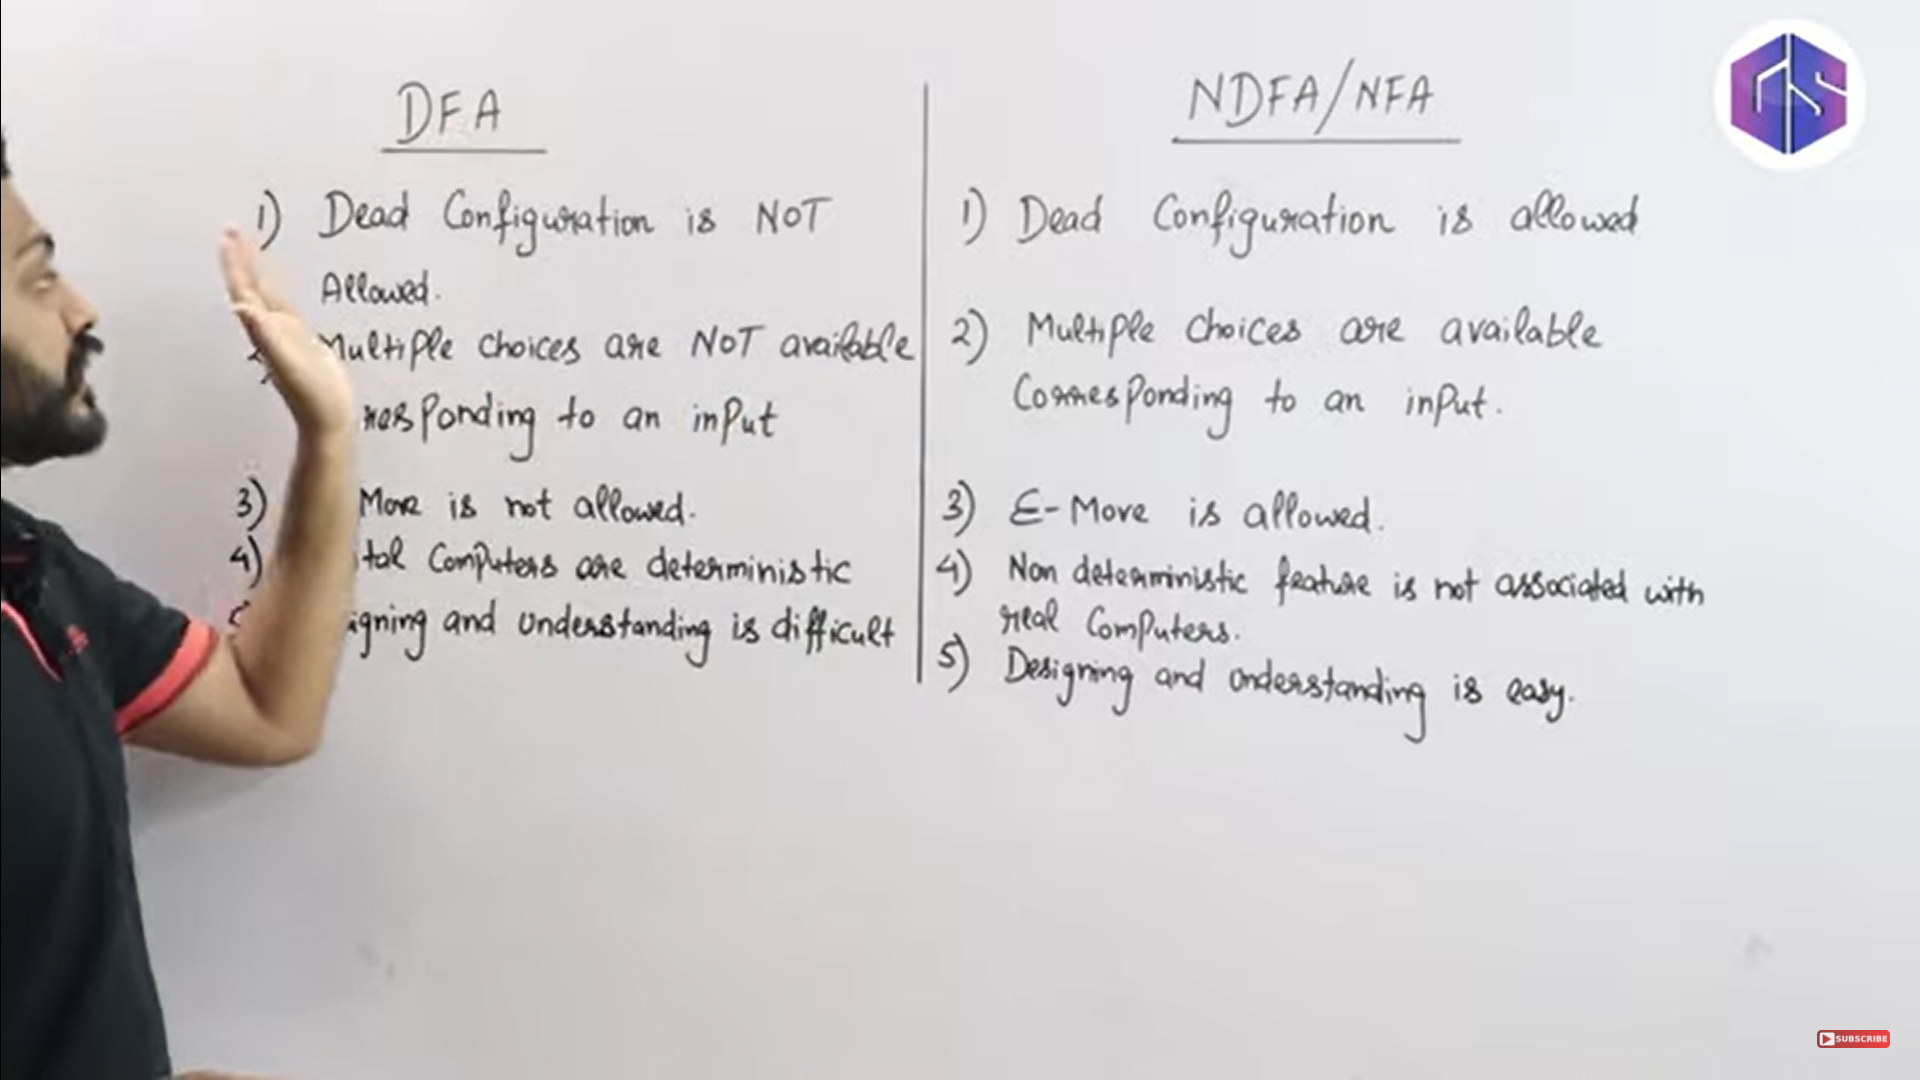 DFA
1) Dead Configuration is NOT
Allowed.
Multiple choices are NOT available
to an input
3) Move is not allowed.
4) Computers are deterministic
and understanding is difficult
NDFA/NFA
1) Dead Configuration is allowed
2) Multiple choices are available
Corresponding to an input.
3) ε-Move is allowed.
4) Non deterministic feature is not associated with
real Computers.
5) Designing and understanding is easy.
GS
SUBSCRIBE